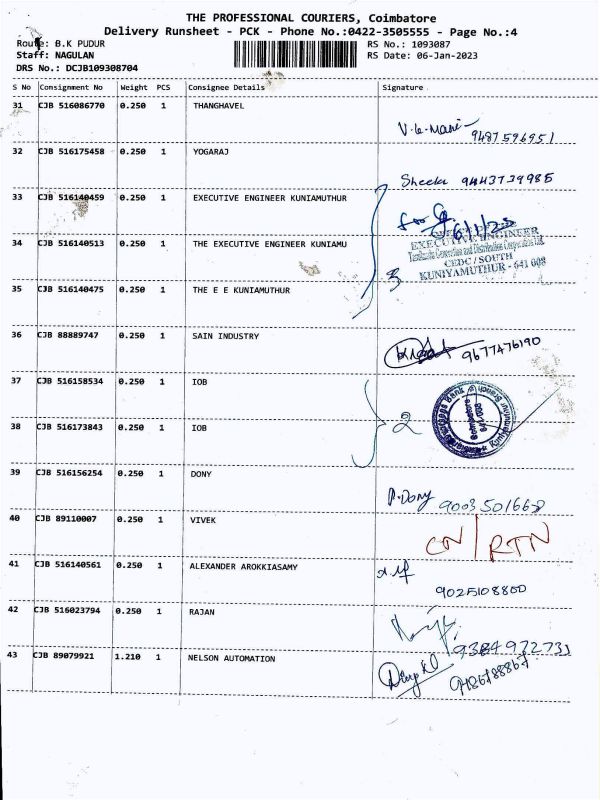 THE PROFESSIONAL COURIERS, Coimbatore
Delivery Runsheet - PCK - Phone No.:0422-3505555 - Page No.:4
Route: B.K PUDUR RS No.: 1093087
Staff: NAGULAN RS Date: 06-Jan-2023
DRS No.: DCJB109308704
S No Consignment No Weight PCS Consignee Details Signature
31 CJB 516086770 0.250 1 THANGHAVEL
9487596951
32 CJB 516175458 0.250 1 YOGARAJ
Sheela 9443739985
33 CJB 516140459 0.250 1 EXECUTIVE ENGINEER KUNIAMUTHUR
6/1/23
EXECUTIVE ENGINEER
34 CJB 516140513 0.250 1 THE EXECUTIVE ENGINEER KUNIAMU
CEDC / SOUTH
3 KUNIYAMUTHUR - 641 008
35 CJB 516140475 0.250 1 THE E E KUNIAMUTHUR
36 CJB 88889747 0.250 1 SAIN INDUSTRY
9677476190
37 CJB 516158534 0.250 1 IOB
2
38 CJB 516173843 0.250 1 IOB
39 CJB 516156254 0.250 1 DONY
P. Dony
40 CJB 89110007 0.250 1 VIVEK
CN/RTN
41 CJB 516140561 0.250 1 ALEXANDER AROKKIASAMY
9025108800
42 CJB 516023794 0.250 1 RAJAN
9384972731
43 CJB 89079921 1.210 1 NELSON AUTOMATION